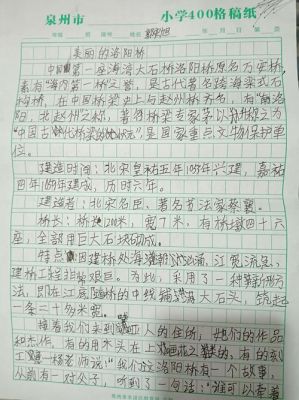 泉州市 小学400格稿纸
年 班 姓名 年 月 日 第 页
美丽的洛阳桥
中国第一座海湾大石桥洛阳桥原名万安桥,
素有"海内第一桥之誉",是古代著名跨海梁式石
构桥,在中国桥梁史上与赵州桥齐名,有"南洛
阳,北赵州之称",著名桥梁专家茅以升称之为
"中国古代桥梁的状元",是国家重点文物保护单
位。
建造时间:北宋皇祐五年1053年兴建,嘉祐
四年1059年建成,历时六年。
建造者:北宋名臣、著名书法家蔡襄。
桥长:桥长1200米,宽7米,有桥墩四十六
座,全部用巨大石块砌成。
特点:建桥处海潮汹涌,江宽流急,
建桥工程非常艰巨。为此,采用了一种新
方法,即在江底沿桥的中线铺大石头,筑起
一条二十多米宽。
接着我们来到人的住所,她们的作品
和杰作,有的用木头在上
杨老师说:"我们这洛阳桥有一个故事,
从前有一对父子,听到了一句话:"谁可以牵着